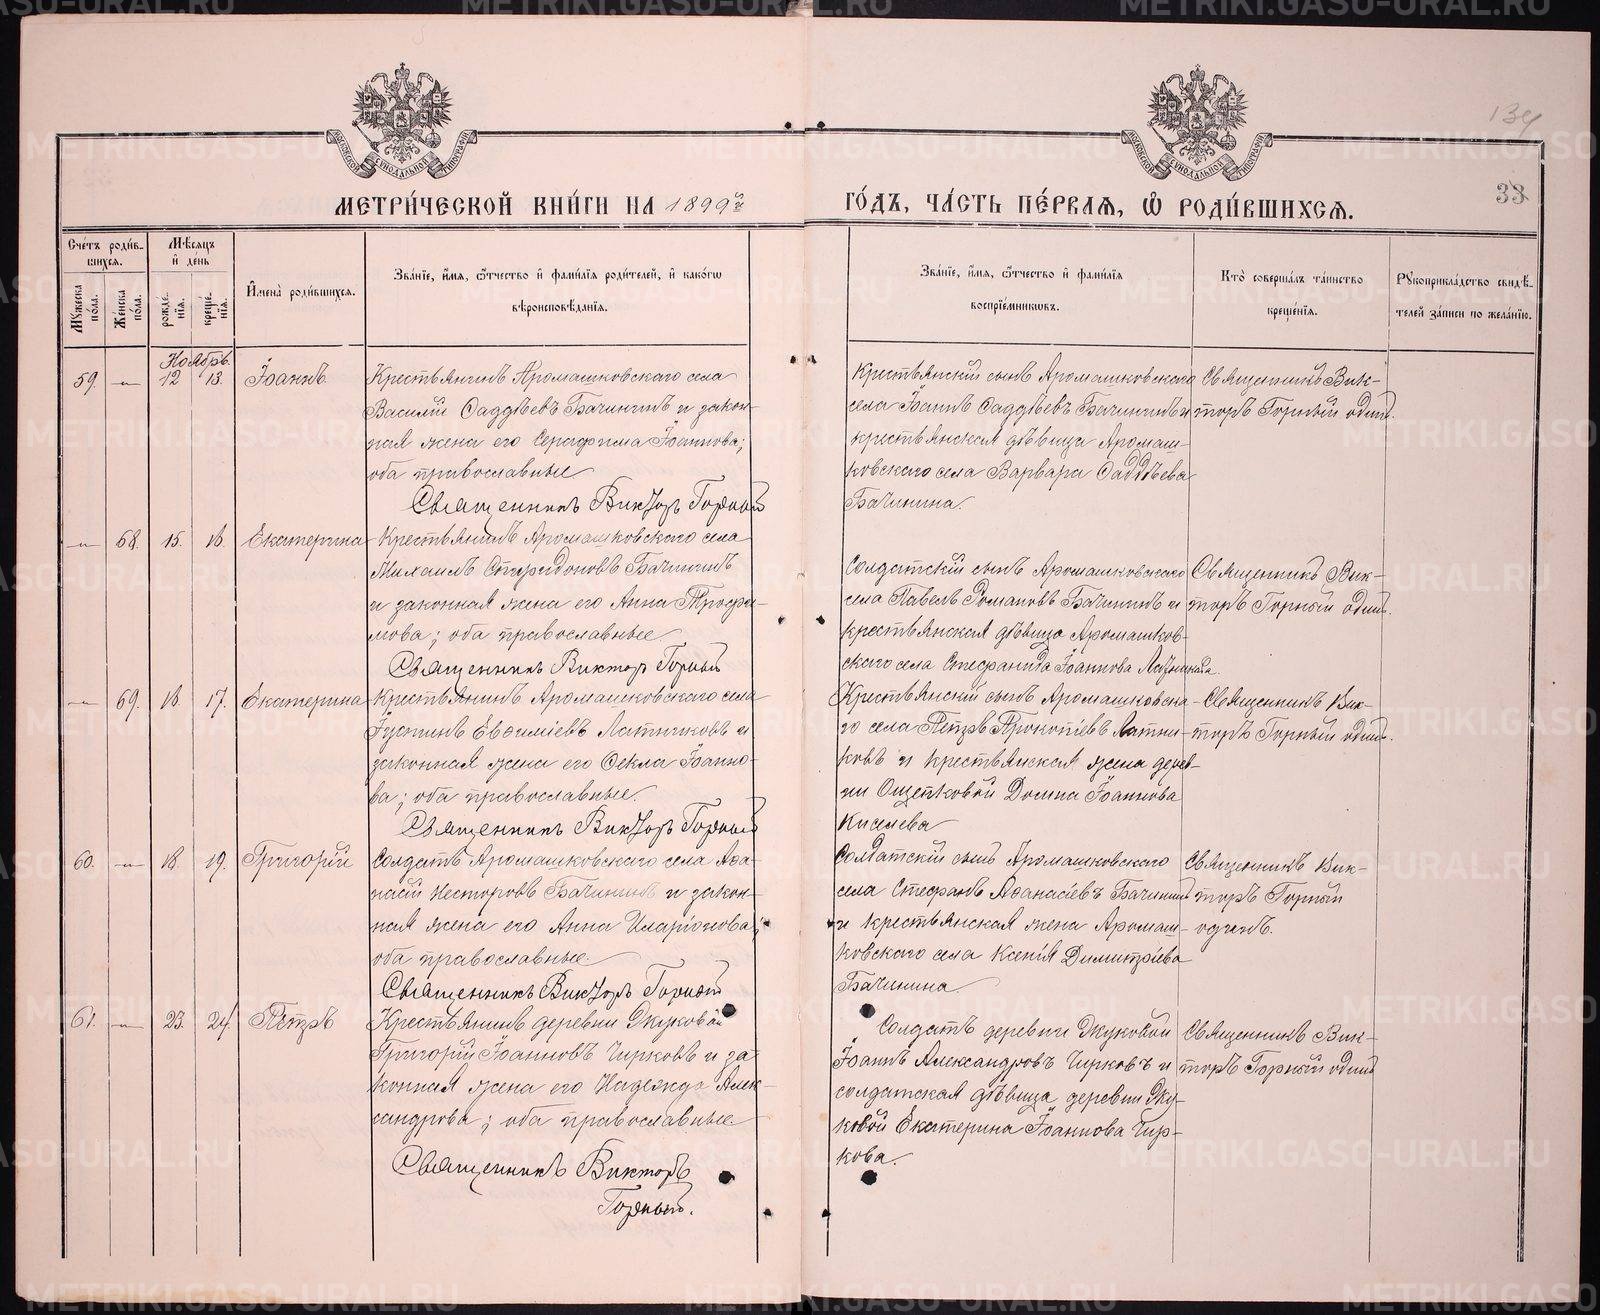 134
МЕТРИ́ЧЕСКОЙ КНИ́ГИ НА 1899й
ГО́ДЪ, ЧА́СТЬ ПЕ́РВАЯ, Ѡ РОДИ́ВШИХСЯ.
33
Сче́тъ роди́в-
шихся.
Му́жеска по́ла.
Же́нска по́ла.
Мѣ́сяцъ
и де́нь
рожде́-
нїя.
креще́-
нїя.
И́мена̀ роди́вшихся.
Зва́нїе, и́мя, ѻ́тчество и фами́лїя роди́телей, и како́гѡ
вѣроисповѣ́данїя.
Зва́нїе, и́мя, ѻ́тчество и фами́лїя
воспрїе́мниковъ.
Кто̀ соверша́лъ та́инство
креще́нїя.
Рукоприкла́дство свидѣ́-
телей за́писи по жела́нїю.
Ноябрь.
59. — 12 13. Іоаннъ
Крестьянинъ Аромашковскаго села
Василій Фаддѣевъ Бачининъ и закон-
ная жена его Серафима Іоаннова;
оба православные
Священникъ Викторъ Горный
Крестьянскій сынъ Аромашковскаго
села Іоаннъ Фаддѣевъ Бачининъ и
крестьянская дѣвица Аромаш-
ковскаго села Варвара Фаддѣева
Бачинина.
Священникъ Вик-
торъ Горный один.
— 68. 15. 16. Екатерина
Крестьянинъ Аромашковскаго села
Михаилъ Спиридоновъ Бачининъ
и законная жена его Анна Трофи-
мова; оба православные
Священникъ Викторъ Горный
Солдатскій сынъ Аромашковскаго
села Павелъ Романовъ Бачининъ и
крестьянская дѣвица Аромашков-
скаго села Стефанида Іоаннова
Священникъ Вик-
торъ Горный один.
— 69. 16. 17. Екатерина
Крестьянинъ Аромашковскаго села
Іустинъ Евѳиміевъ Латниковъ и
законная жена его Ѳекла Іоанно-
ва; оба православные.
Священникъ Викторъ Горный
Крестьянскій сынъ Аромашковска-
го села Петръ Прокопіевъ Латни-
ковъ и крестьянская жена дерев-
ни Ощепковой Домна Іоаннова
Киселева
Священникъ Вик-
торъ Горный один.
60. — 18. 19. Григорій
Солдатъ Аромашковскаго села Аѳа-
насій Несторовъ Бачининъ и закон-
ная жена его Анна Иларіонова;
оба православные.
Священникъ Викторъ Горный
Солдатскій сынъ Аромашковскаго
села Стефанъ Аѳанасіевъ Бачининъ
и крестьянская жена Аромаш-
ковскаго села Ксенія Димитріева
Бачинина
Священникъ Вик-
торъ Горный
одинъ.
61. — 23. 24. Петръ
Крестьянинъ деревни Жуковой
Григорій Іоанновъ Чирковъ и за-
конная жена его Надежда Алек-
сандрова; оба православные
Священникъ Викторъ
Горный.
Солдатъ деревни Жуковой
Іоаннъ Александровъ Чирковъ и
солдатская дѣвица деревни Жу-
ковой Екатерина Іоаннова Чир-
кова.
Священникъ Вик-
торъ Горный один
METRIKI.GASO-URAL.RU